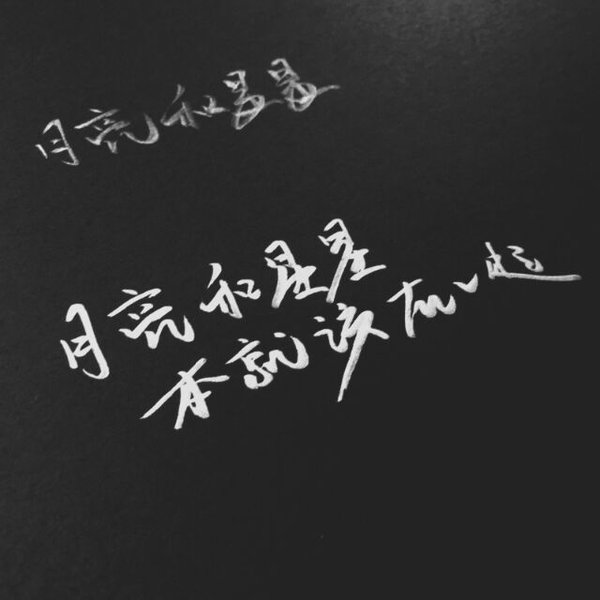 月亮和星星
月亮和星星
本就该在一起